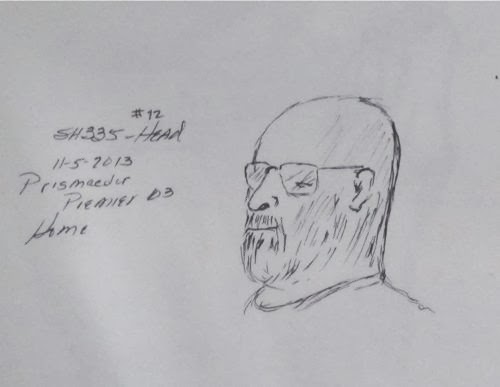 #12
SH335-Head
11-5-2013
Prismacolor
Premier 03
Home